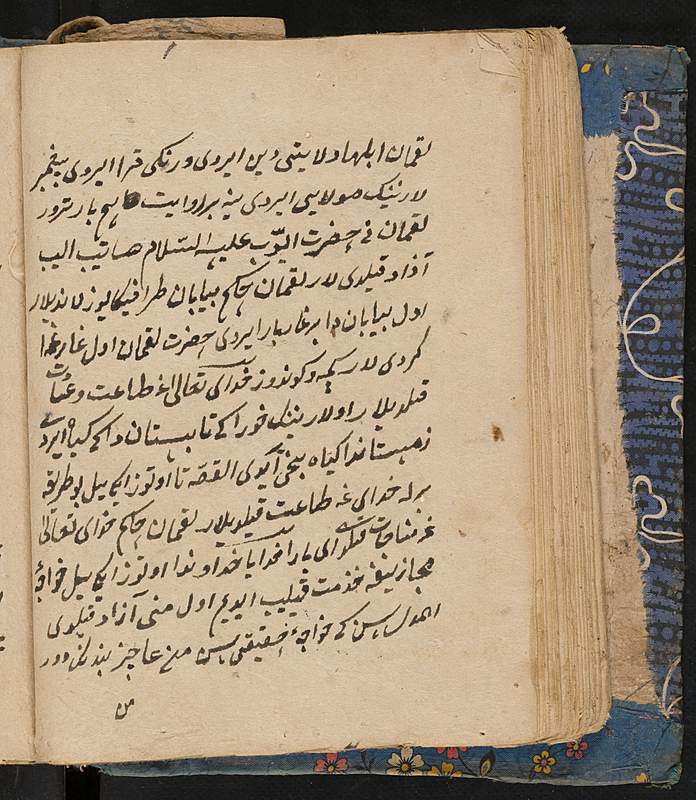 لقمان ولایتی دین ایردی ورنکی قرا ایردی پیغمبر
لارنینک مولاسی ایردی ینه بر روایت بار تورور
لقمان نی حضرت ایوب علیه السلام ساتیب الیب
آزاد قیلدی لار لقمان حکیم بیابان طرافیکا یوزلاندیلار
اول بیابان دا بر غار بار ایردی حضرت لقمان اول غارغه
کردی لار کیچه و کوندوز خدای تعالی غه طاعت و عبادت
قیلدیلار اولارنینک خوراکی تابستان دا کیاه ایردی
زمستاندا کیاه بیخی ایردی القصه تا اوتوز ایکی ییل بو طریقه
برله خدای غه طاعت قیلدیلار لقمان حکیم خدای تعالی
غه مناجات قیلدی ای بار خدایا خداوندا اوتوز ایکی ییل خواجهٔ
مجازیغه خدمت قیلیب ایدیم اول منی آزاد قیلدی
سن که خواجهٔ حقیقی سن من عاجز بنده نک دور
من